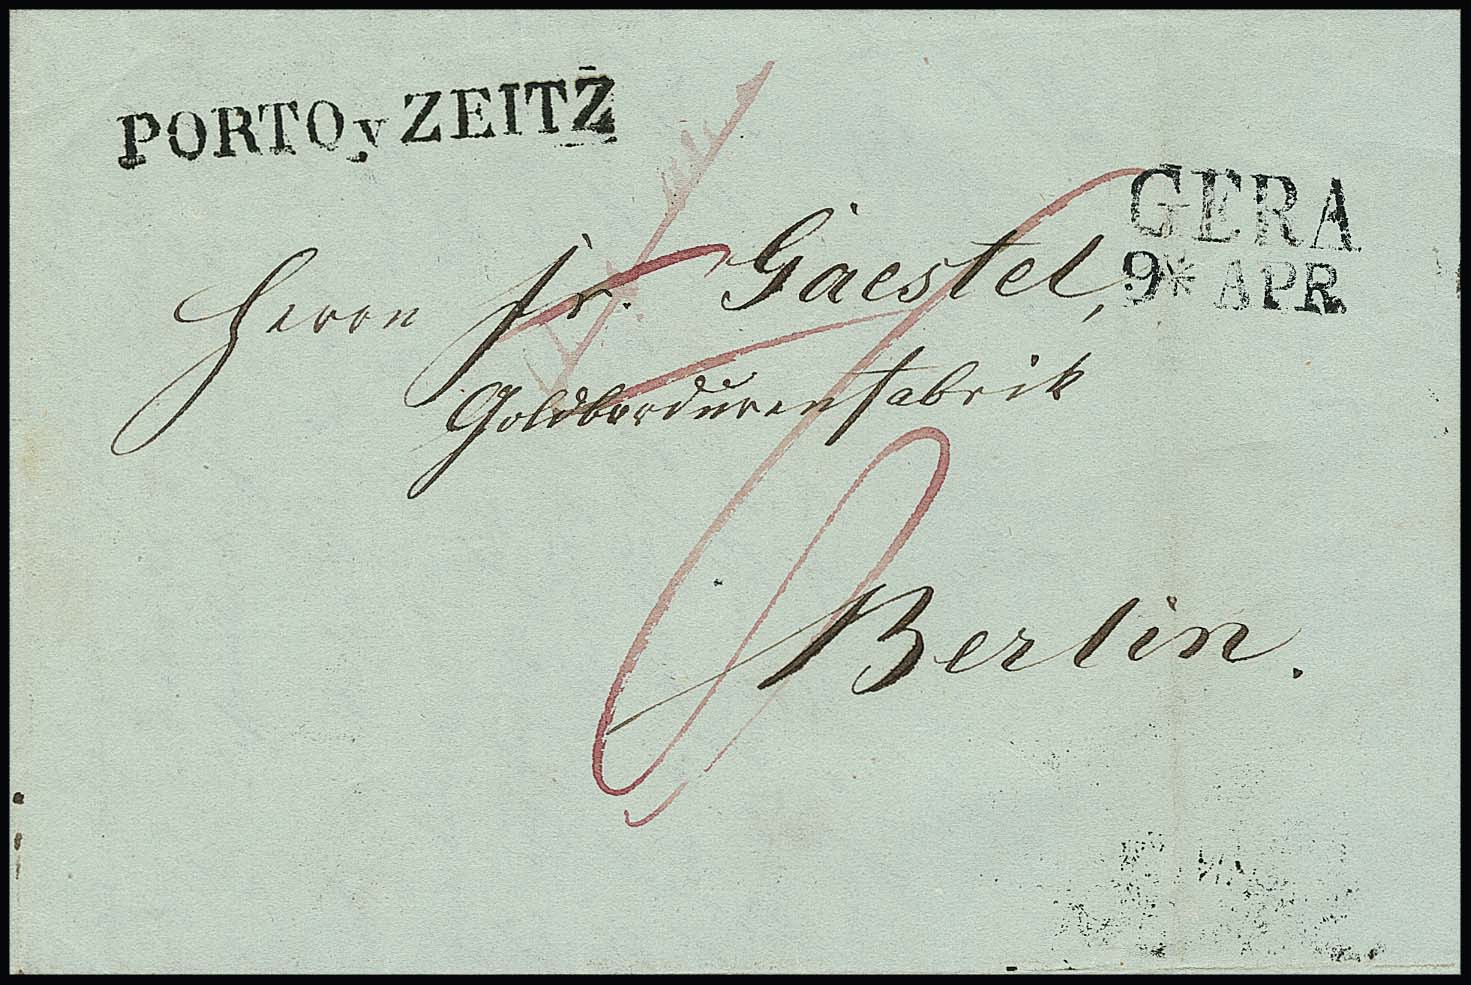 PORTO v ZEITZ
GERA
9 * APR.
Herrn Fr. Gaestel,
Goldbordürenfabrik
Berlin.